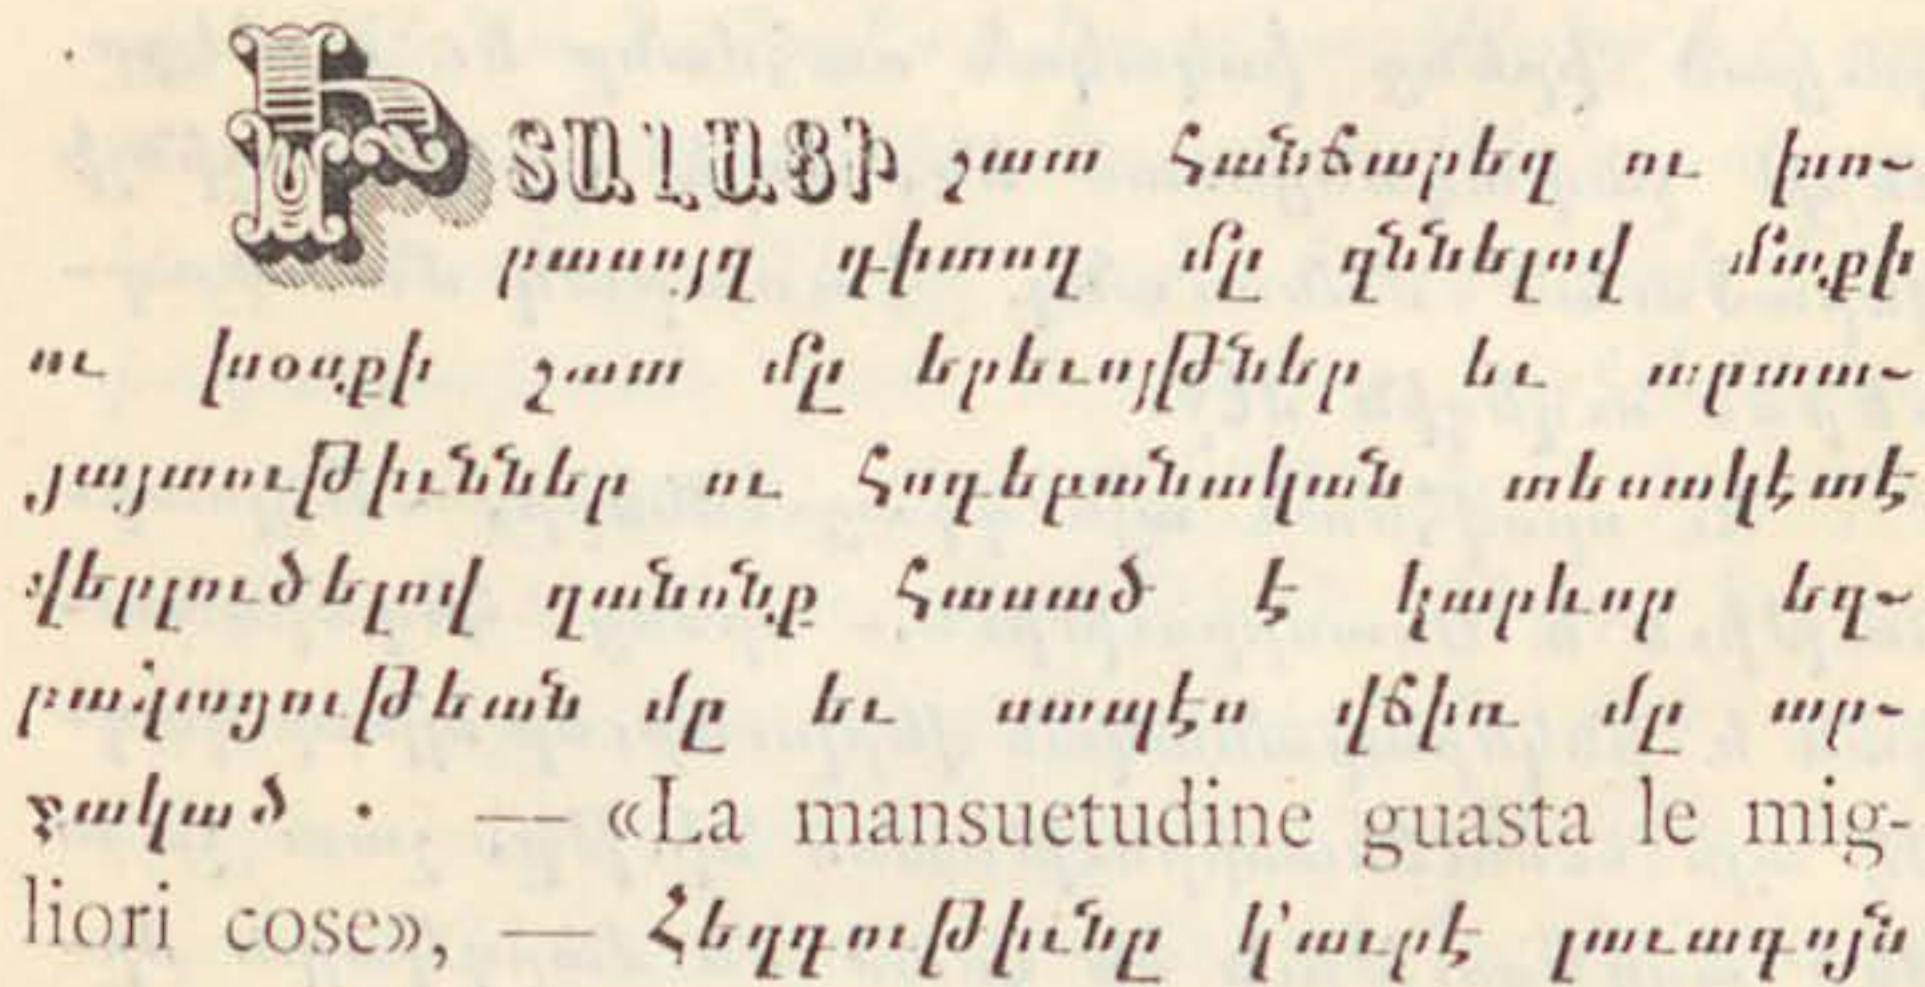 ԻՏԱԼԱՑԻ շատ հանճարեղ ու խո-
րասոյզ դիտող մը զննելով մտքի
ու խօսքի շատ մը երեւոյթներ եւ արտա-
յայտութիւններ ու հոգեբանական տեսակէտէ
վերլուծելով զանոնք հասած է կարևոր եզ-
րակացութեան մը եւ սապէս վճիռ մը ար-
ձակած . — «La mansuetudine guasta le mig-
liori cose», — Հեզութիւնը կ՚աւրէ լաւագոյն